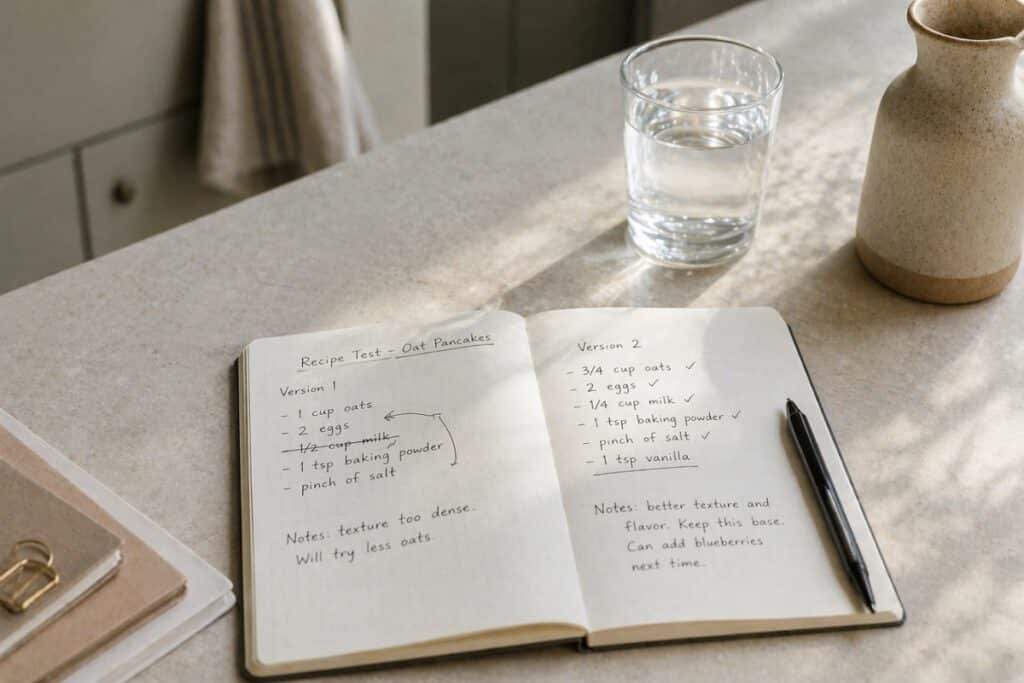 Recipe Test - Oat Pancakes
Version 1
- 1 cup oats
- 2 eggs
- 1/2 cup milk
- 1 tsp baking powder
- pinch of salt
Notes: texture too dense.
Will try less oats.
Version 2
- 3/4 cup oats ✓
- 2 eggs ✓
- 1/4 cup milk ✓
- 1 tsp baking powder ✓
- pinch of salt ✓
- 1 tsp vanilla
Notes: better texture and
flavor. Keep this base.
Can add blueberries
next time.